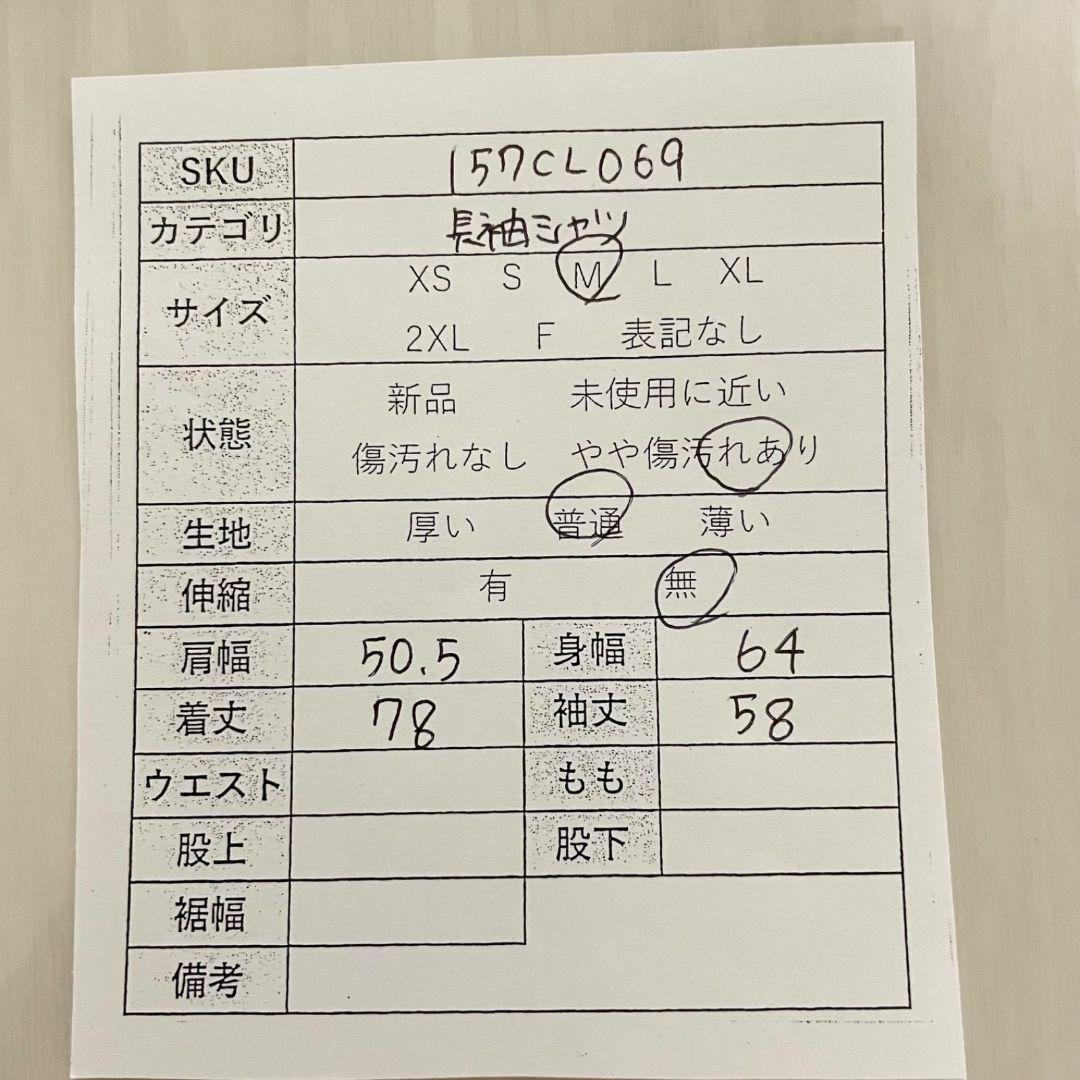 SKU 157CL069
カテゴリ 長袖シャツ
サイズ XS S M L XL
2XL F 表記なし
状態 新品 未使用に近い
傷汚れなし やや傷汚れあり
生地 厚い 普通 薄い
伸縮 有 無
肩幅 50.5 身幅 64
着丈 78 袖丈 58
ウエスト もも
股上 股下
裾幅
備考